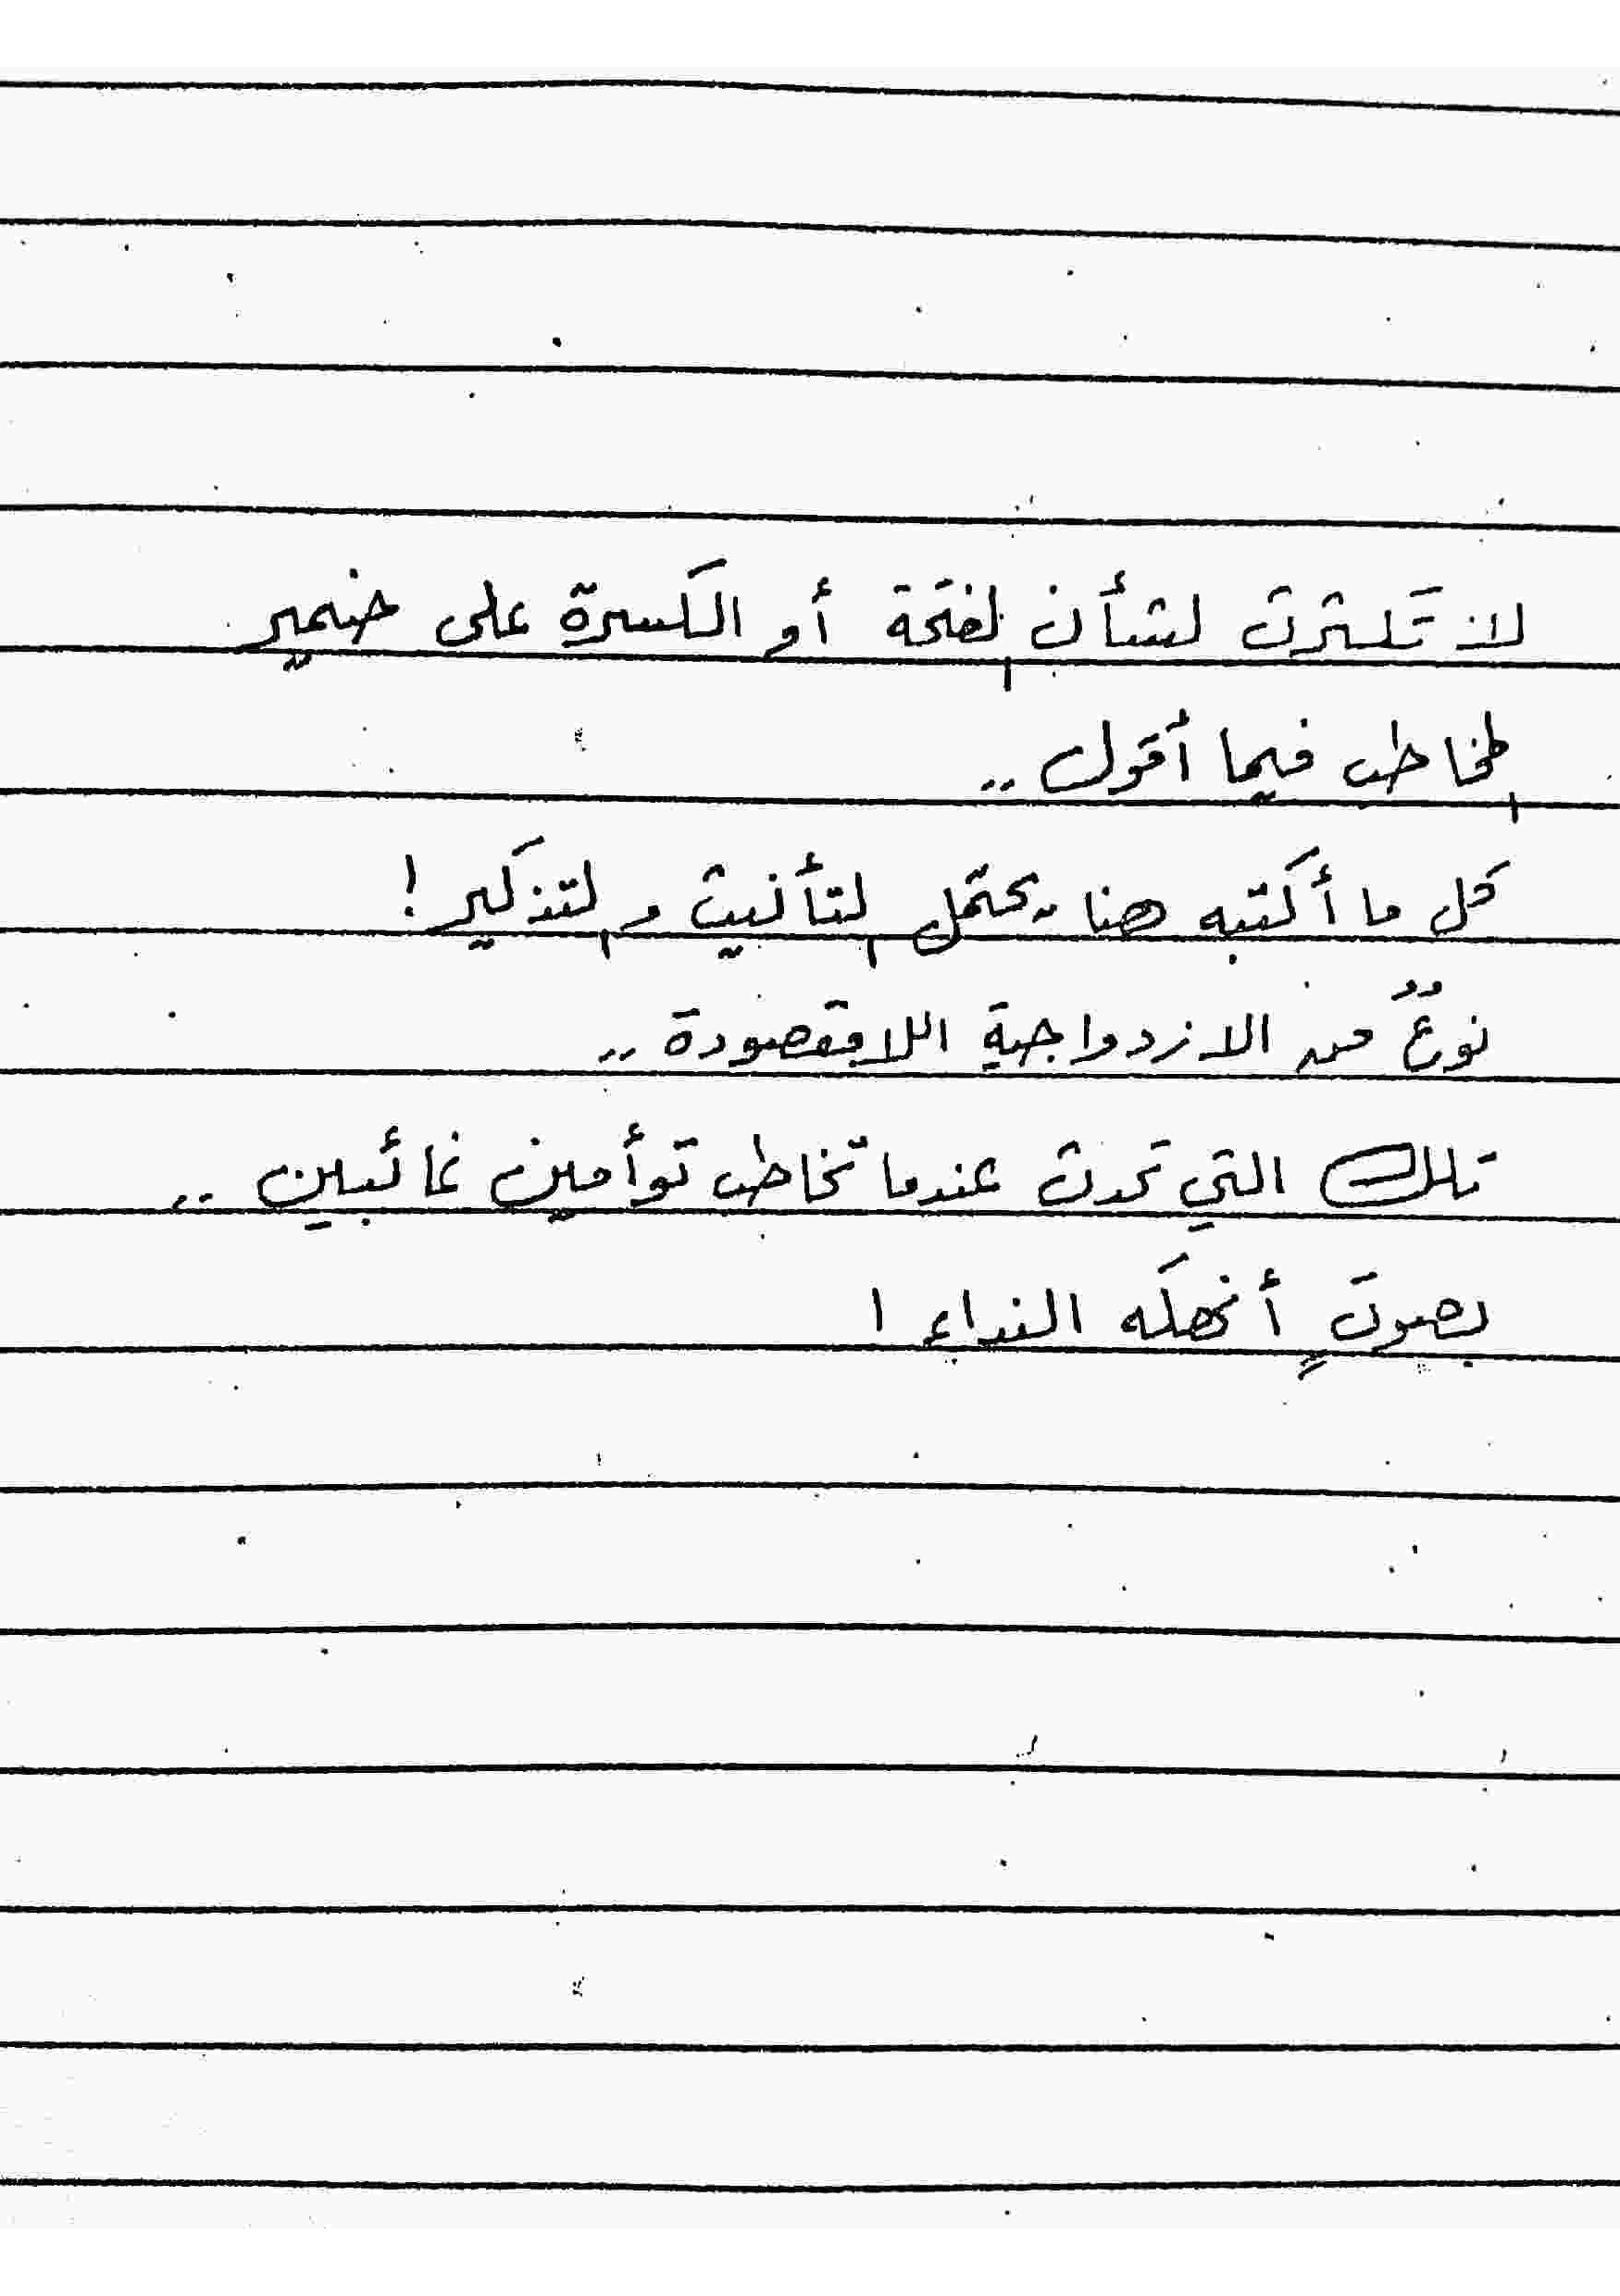 لا تكترث لشأن الفتحة أو الكسرة على ضمير
المخاطب فيما أقول ..
كل ما أكتبه هنا يحتمل التأنيث والتذكير !
نوعٌ من الازدواجية اللامقصودة ..
تلك التي تحدث عندما تخاطب توأمين غائبين ..
بصوتٍ أنهكه النداء !